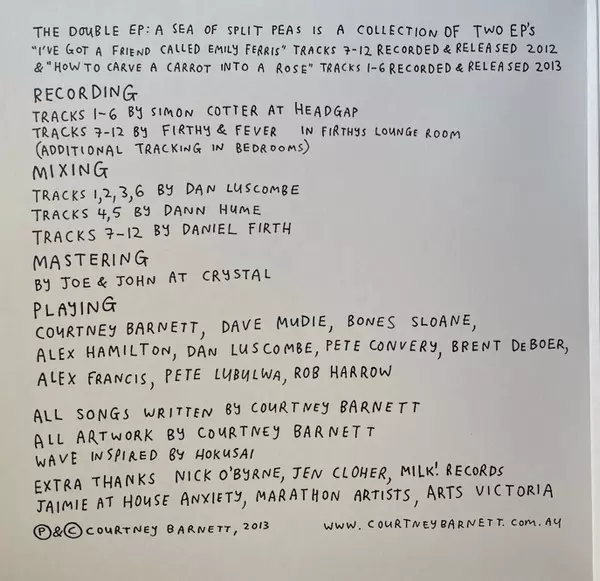 THE DOUBLE EP: A SEA OF SPLIT PEAS IS A COLLECTION OF TWO EP'S
"I'VE GOT A FRIEND CALLED EMILY FERRIS" TRACKS 7-12 RECORDED & RELEASED 2012
& "HOW TO CARVE A CARROT INTO A ROSE" TRACKS 1-6 RECORDED & RELEASED 2013
RECORDING
TRACKS 1-6 BY SIMON COTTER AT HEADGAP
TRACKS 7-12 BY FIRTHY & FEVER IN FIRTHYS LOUNGE ROOM
(ADDITIONAL TRACKING IN BEDROOMS)
MIXING
TRACKS 1,2,3,6 BY DAN LUSCOMBE
TRACKS 4,5 BY DANN HUME
TRACKS 7-12 BY DANIEL FIRTH
MASTERING
BY JOE & JOHN AT CRYSTAL
PLAYING
COURTNEY BARNETT, DAVE MUDIE, BONES SLOANE,
ALEX HAMILTON, DAN LUSCOMBE, PETE CONVERY, BRENT DEBOER,
ALEX FRANCIS, PETE LUBULWA, ROB HARROW
ALL SONGS WRITTEN BY COURTNEY BARNETT
ALL ARTWORK BY COURTNEY BARNETT
WAVE INSPIRED BY HOKUSAI
EXTRA THANKS NICK O'BYRNE, JEN CLOHER, MILK! RECORDS
JAIMIE AT HOUSE ANXIETY, MARATHON ARTISTS, ARTS VICTORIA
℗&© COURTNEY BARNETT, 2013 WWW.COURTNEYBARNETT.COM.AU